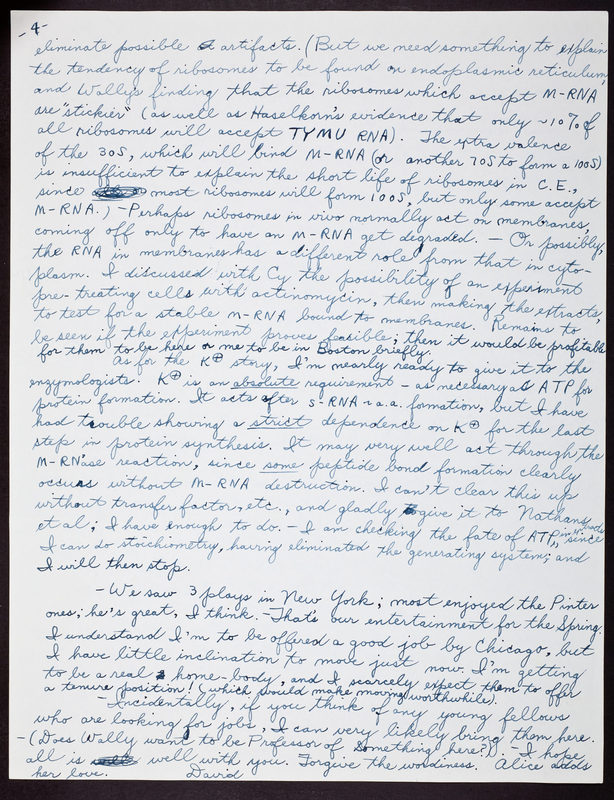 -4-
eliminate possible artifacts. (But we need something to explain
the tendency of ribosomes to be found on endoplasmic reticulum,
and Wally's finding that the ribosomes which accept M-RNA
are "stickier" (as well as Haselkorn's evidence that only ~10% of
all ribosomes will accept TYMV RNA). The extra valence
of the 30S, which will bind M-RNA (or another 70S to form a 100S)
is insufficient to explain the short life of ribosomes in C.E.,
since most ribosomes will form 100S, but only some accept
M-RNA.) - Perhaps ribosomes in vivo normally act on membranes,
coming off only to have an M-RNA get degraded. - Or possibly,
the RNA in membranes has a different role from that in cyto-
plasm. I discussed with Cy the possibility of an experiment
pre-treating cells with actinomycin, then making the extracts,
to test for a stable m-RNA bound to membranes. Remains to
be seen if the experiment proves feasible; then it would be profitable
for them to be here or me to be in Boston briefly.
As for the K⊕ story, I'm nearly ready to give it to the
enzymologists. K⊕ is an absolute requirement - as necessary as ATP for
protein formation. It acts after s-RNA~a.a. formation, but I have
had trouble showing a strict dependence on K⊕ for the last
step in protein synthesis. It may very well act through the
M-RN'ase reaction, since some peptide bond formation clearly
occurs without M-RNA destruction. I can't clear this up
without transfer factor, etc., and gladly give it to Nathans
et al; I have enough to do. - I am checking the fate of ATP, since
I can do stoichiometry, having eliminated the generating system; and
I will then stop.
- We saw 3 plays in New York; most enjoyed the Pinter
ones; he's great, I think. - That's our entertainment for the Spring.
I understand I'm to be offered a good job by Chicago, but
I have little inclination to move just now. I'm getting
to be a real home-body, and I scarcely expect them to offer
a tenure position! (which would make moving worthwhile).
- Incidentally, if you think of any young fellows
who are looking for jobs, I can very likely bring them here.
- (Does Wally want to be Professor of Something here?)). - I hope
all is well with you. Forgive the wordiness. Alice adds
her love. David